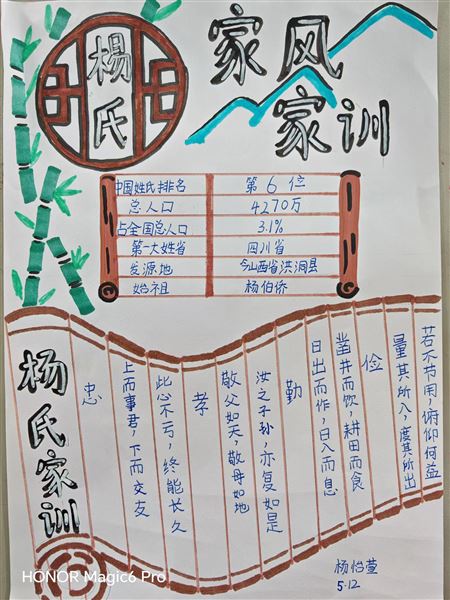 杨氏
家风
家训
中国姓氏排名 第6位
总人口 4270万
占全国总人口 3.1%
第一大姓省 四川省
发源地 今山西省洪洞县
始祖 杨伯侨
杨氏家训
忠
上而事君，下而交友
此心不亏，终能长久
孝
敬父如天，敬母如地
汝之子孙，亦复如是
勤
日出而作，日入而息
凿井而饮，耕田而食
俭
量其所入，度其所出
若不节用，俯仰何益
杨怡萱
5.12
HONOR Magic6 Pro